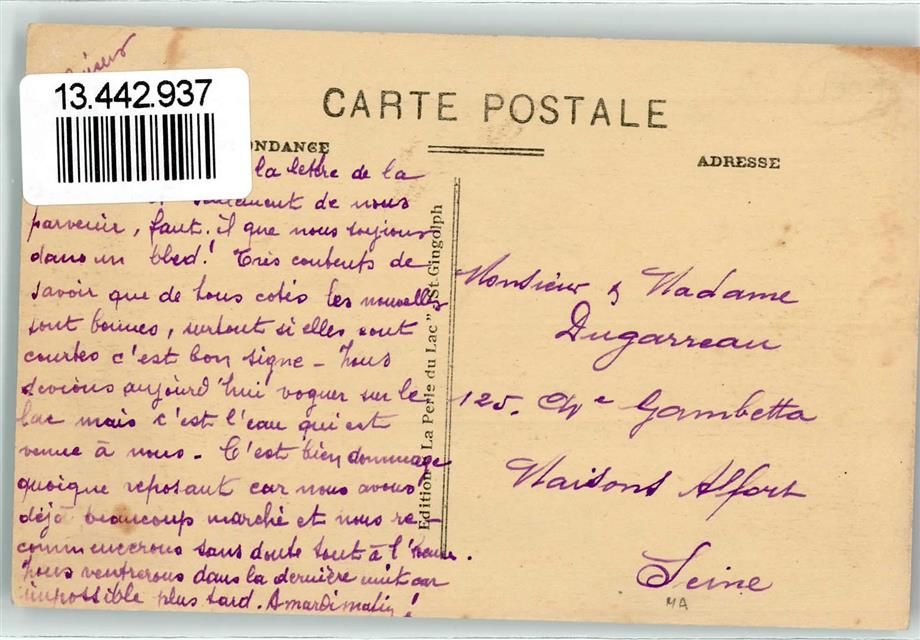 13.442.937
CARTE POSTALE
ONDANCE
ADRESSE
la lettre de la
seulement de nous
parvenir, faut-il que nous soyions
dans un bled! Très contents de
savoir que de tous cotés les nouvelles
sont bonnes, surtout si elles sont
courtes c'est bon signe - Nous
devions aujourd'hui voguer sur le
lac mais c'est l'eau qui est
venue à nous - C'est bien dommage
quoique reposant car nous avons
déjà beaucoup marché et nous re-
commencerons sans doute tout à l'heure.
Nous rentrerons dans la dernière nuit car
impossible plus tard. A mardi matin!
Edition "La Perle du Lac" St-Gingolph
Monsieur & Madame
Dugarreau
125. Av^e Gambetta
Maisons Alfort
Seine
MA